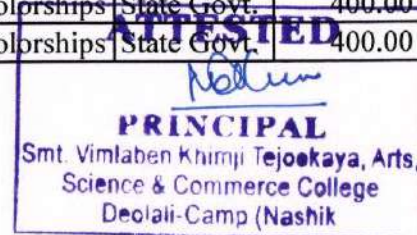 olorships State Govt. 400.00
olorships State Govt. 400.00
ATTESTED
PRINCIPAL
Smt. Vimlaben Khimji Tejookaya, Arts,
Science & Commerce College
Deolali-Camp (Nashik